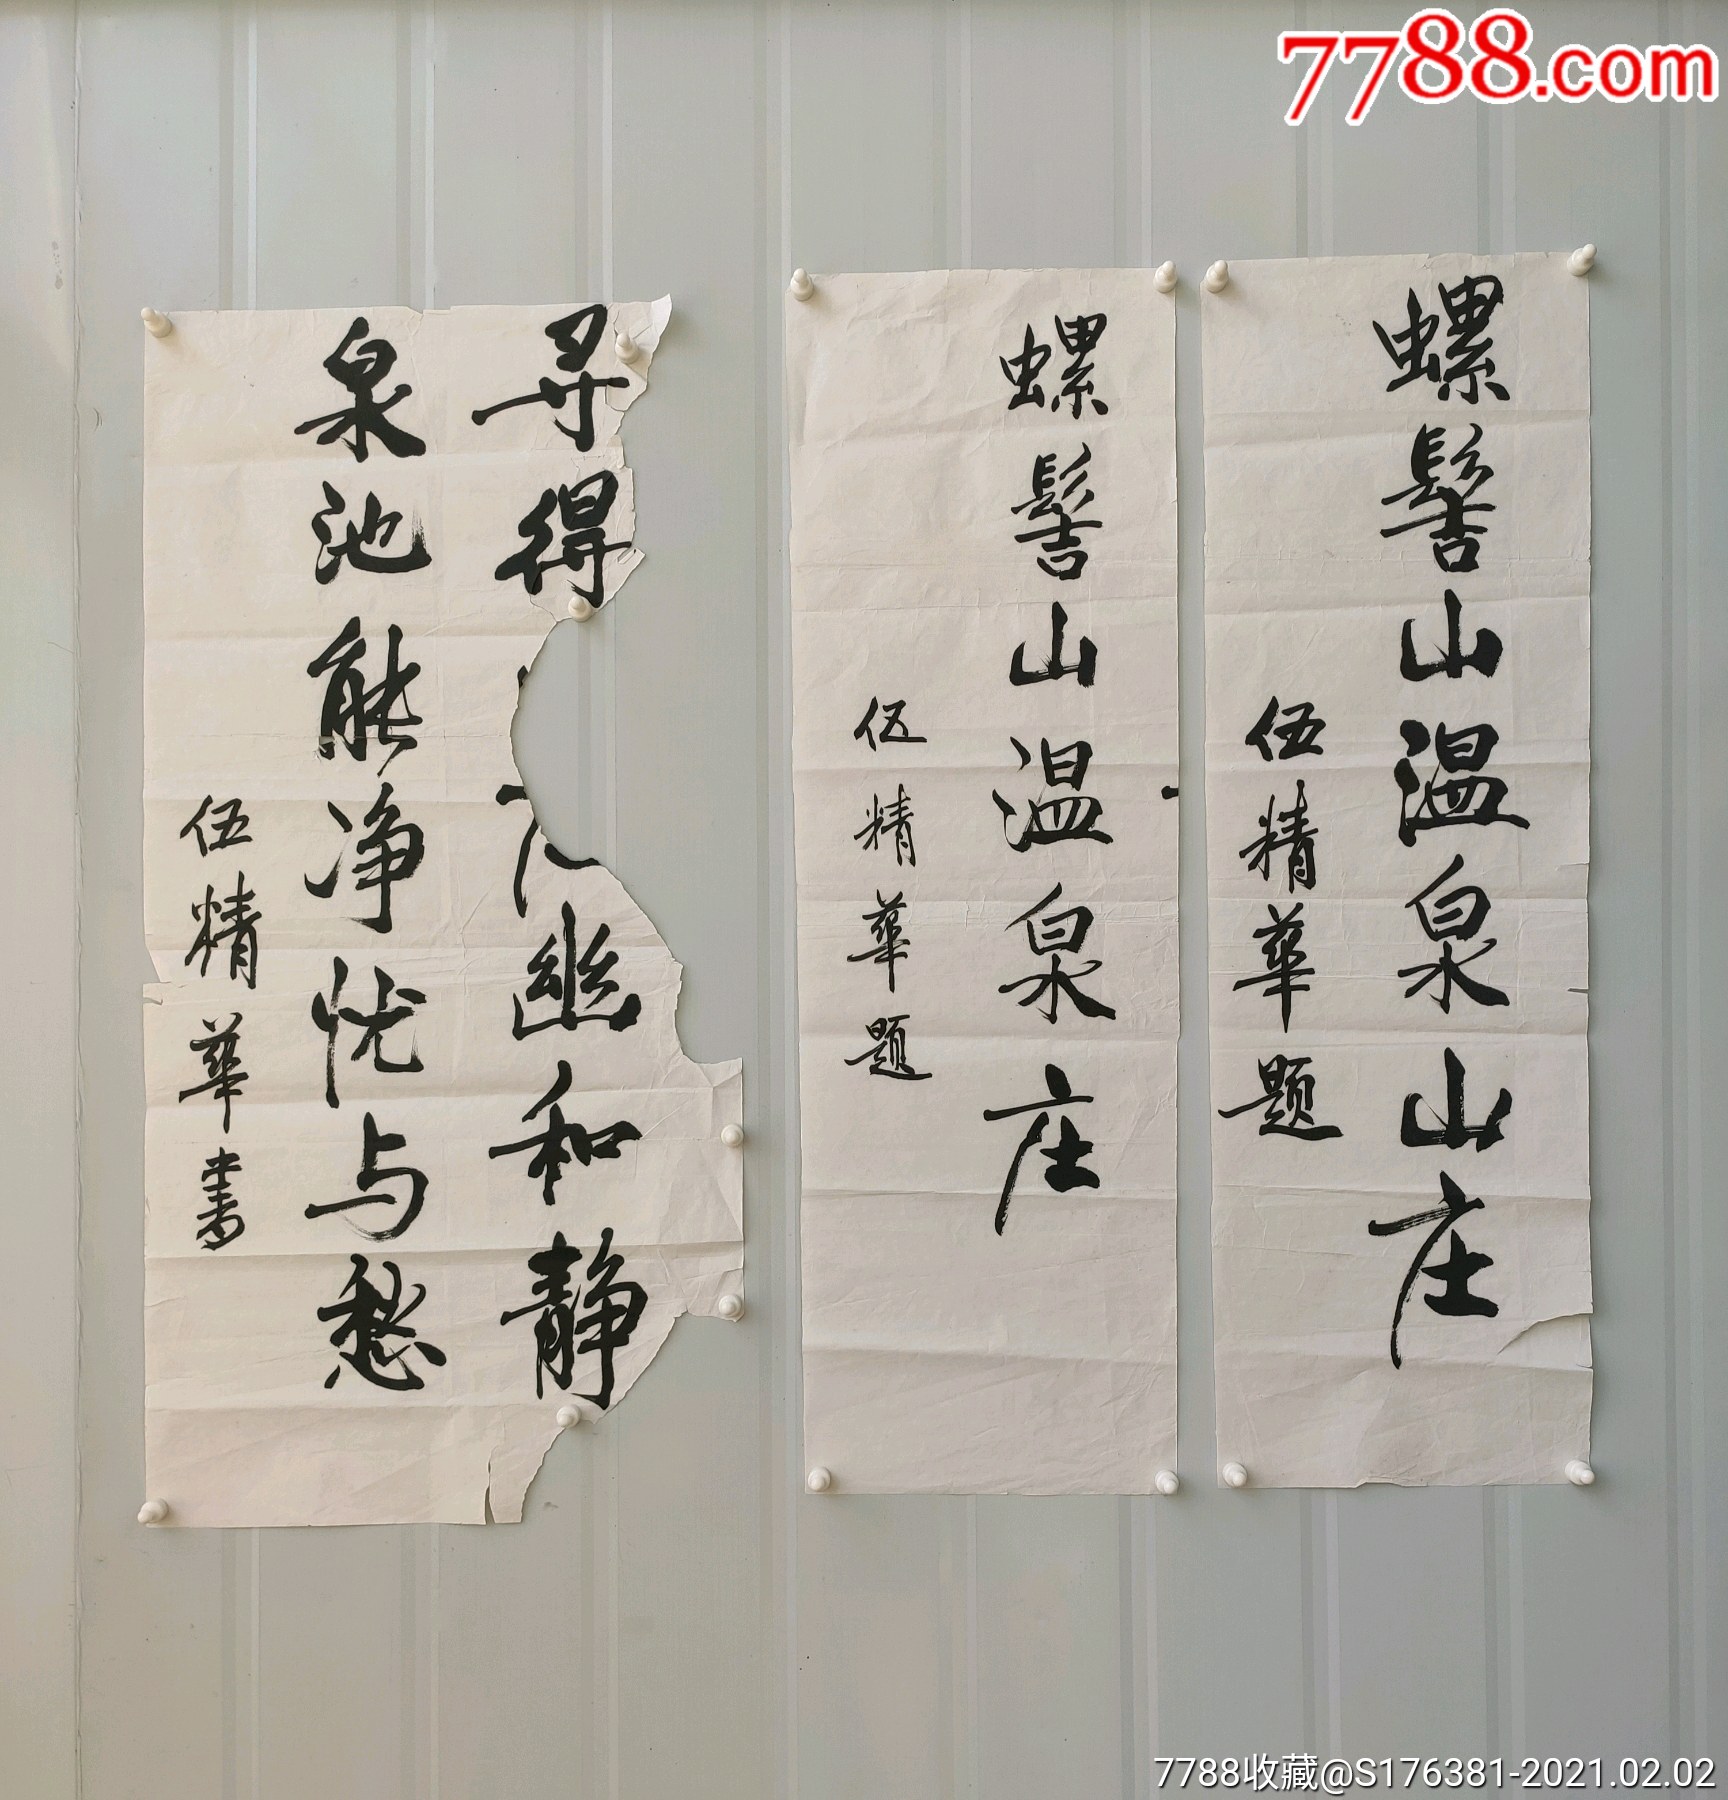 7788.com
螺髻山温泉山庄
伍精華题
螺髻山温泉庄
伍精華题
寻得
幽和静
泉池能净忧与愁
伍精華书
7788收藏@S176381-2021.02.02